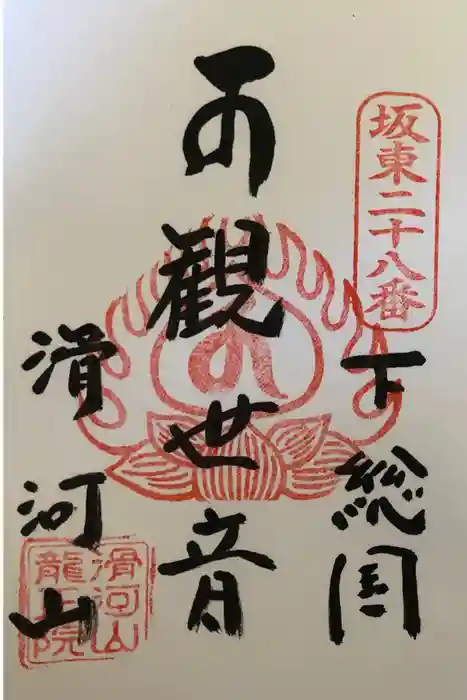 坂東二十八番
下総国
観世音
滑河山
滑河山
龍正院